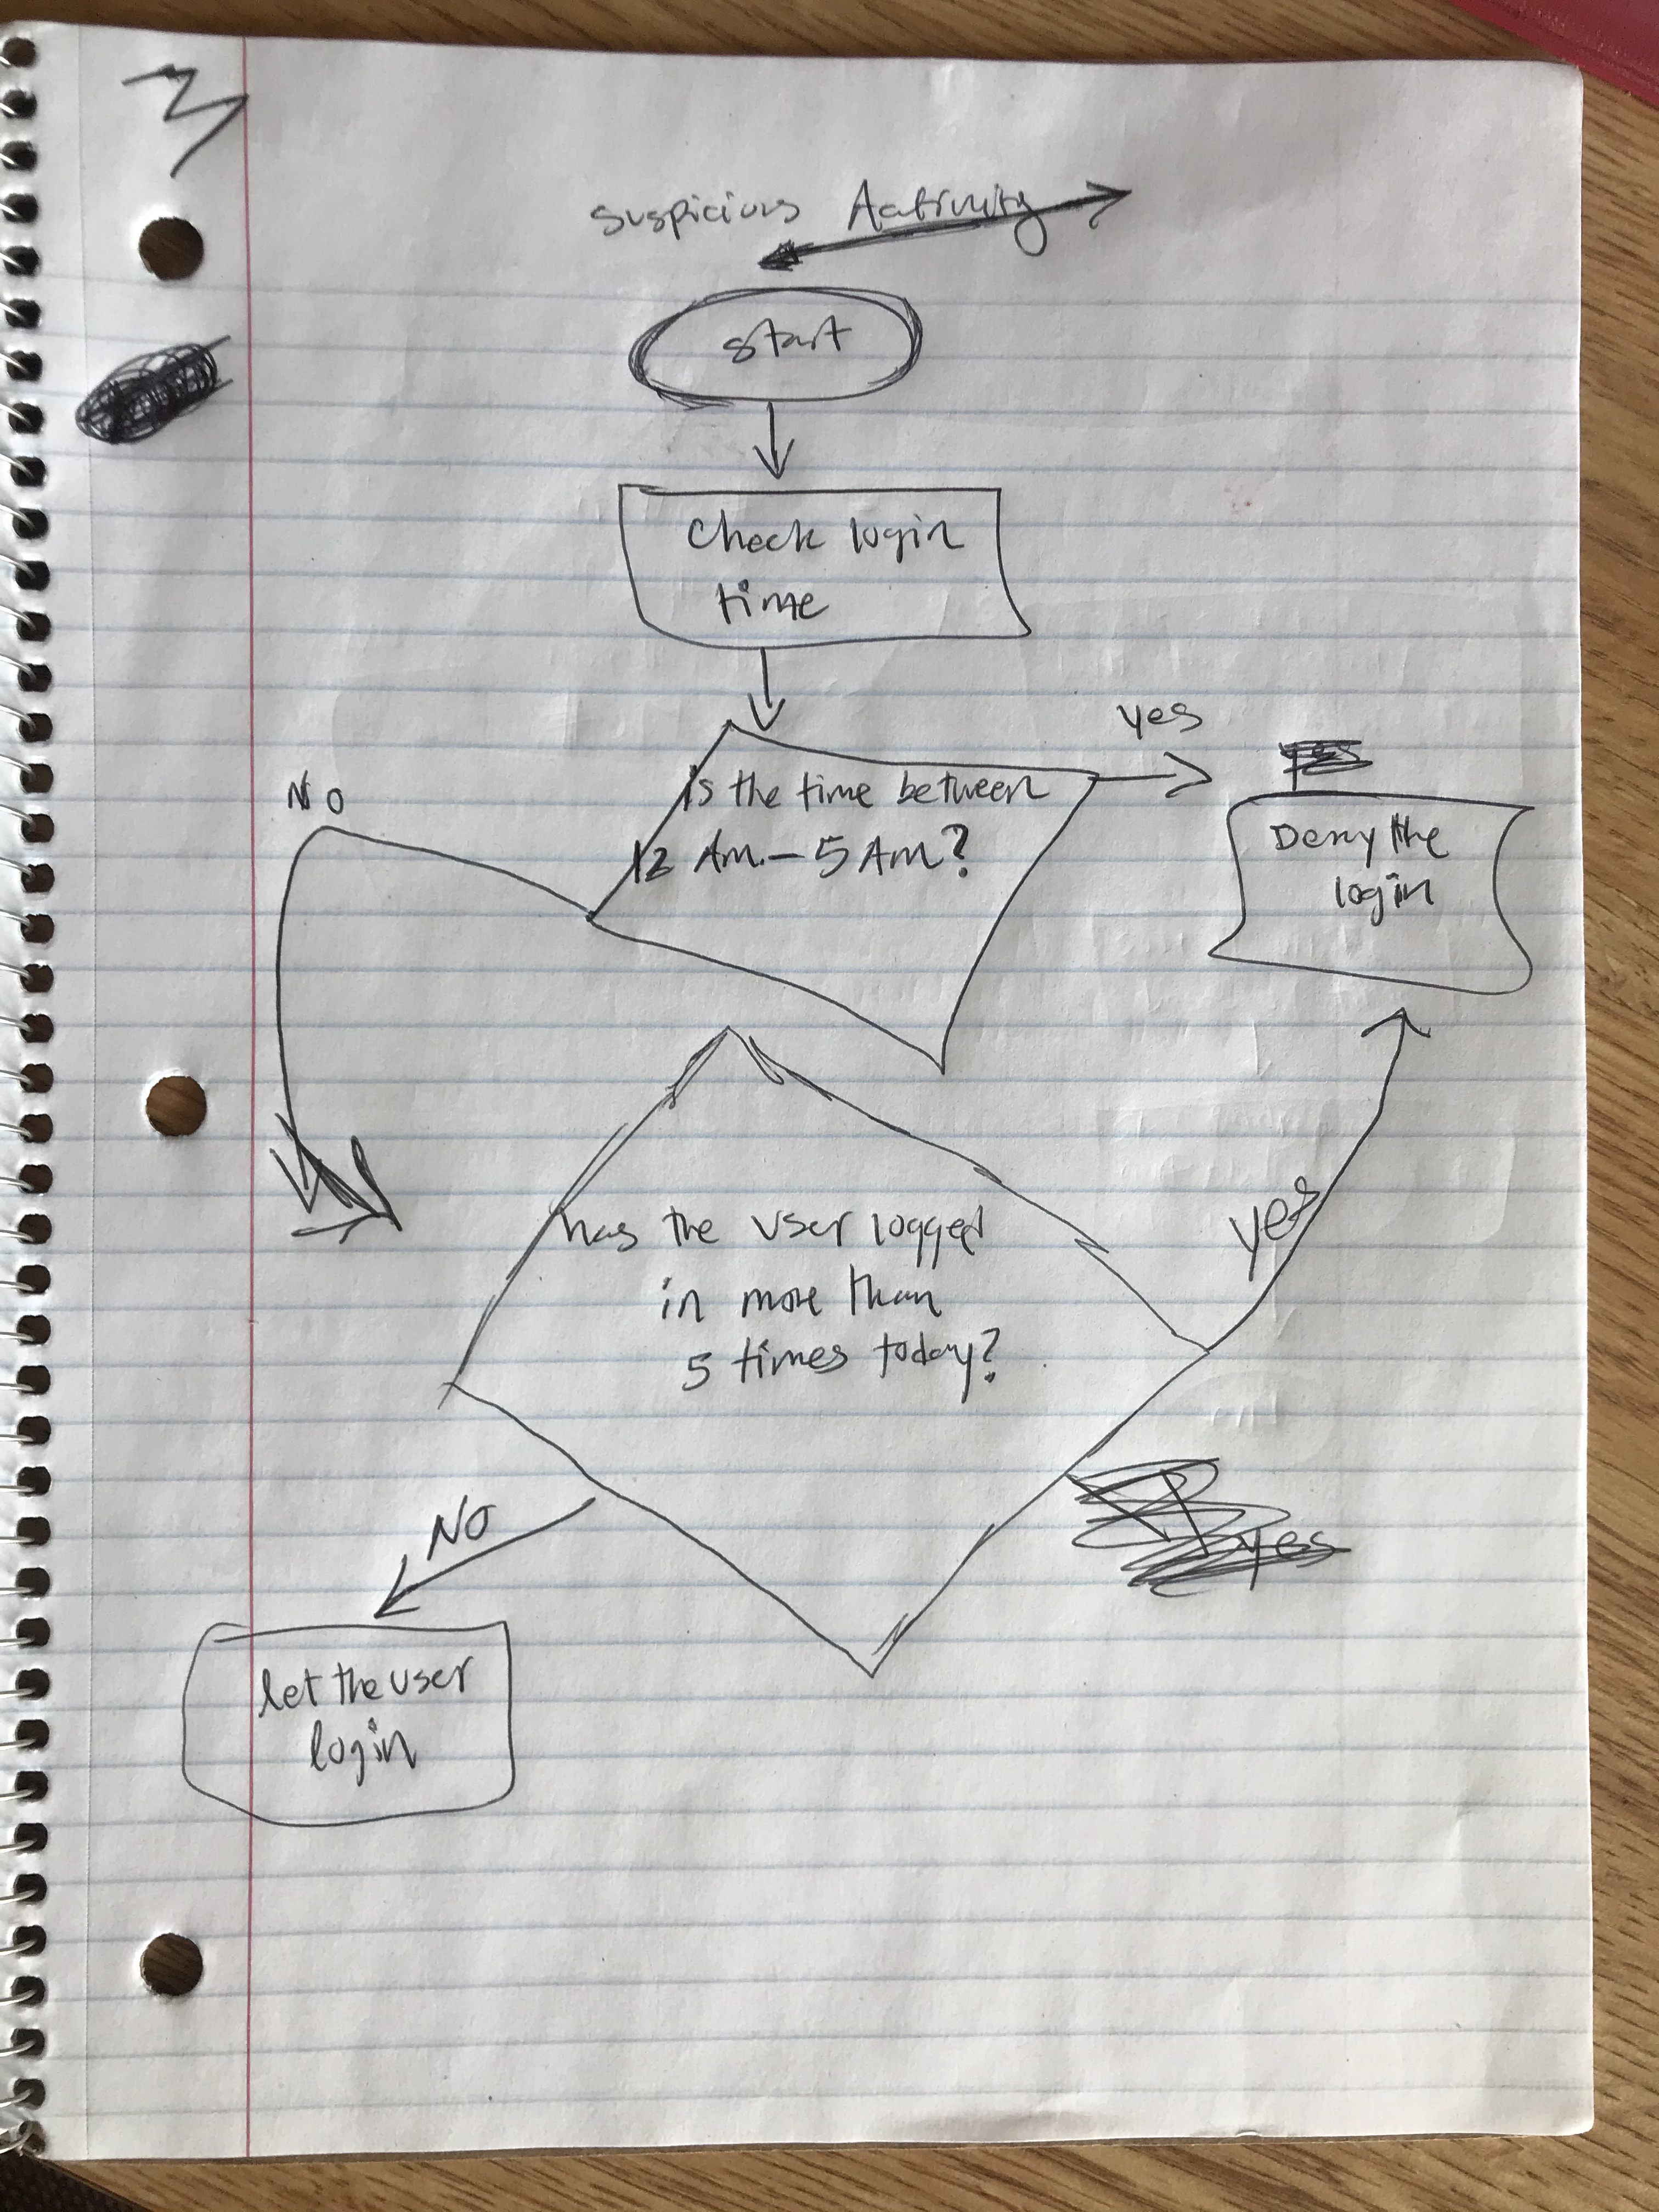 suspicious Aativity
start
Check login
time
yes
Is the time between
12 AM.-5 AM?
No
Deny the
login
has the user logged
in more than
5 times today?
yes
NO
yes
let the user
login